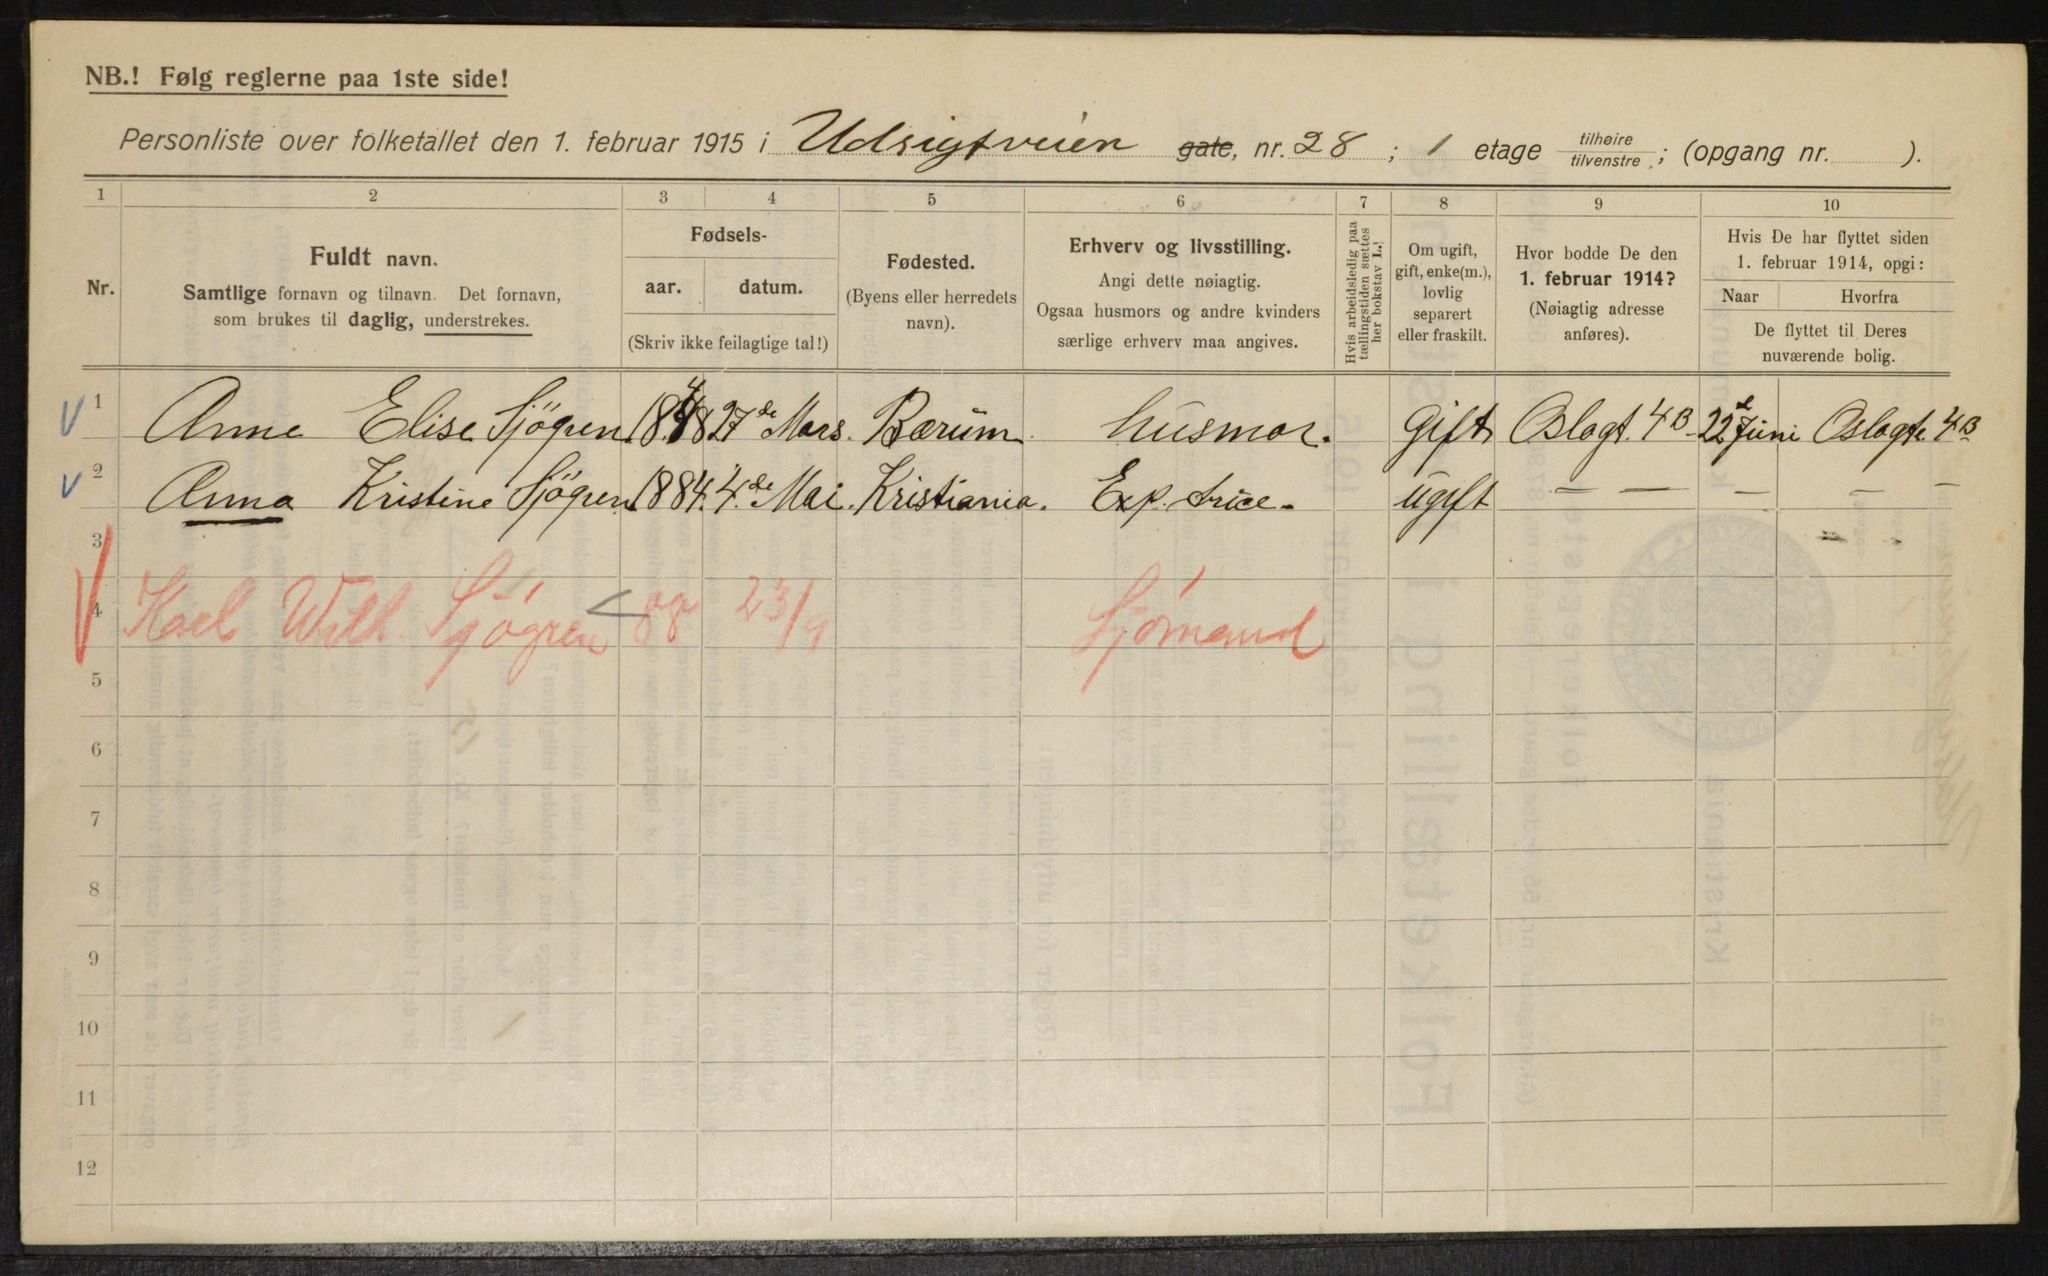 NB.! Følg reglerne paa 1ste side!
Personliste over folketallet den 1. februar 1915 i Udsigtveien gate, nr. 28 ; 1 etage tilhøire tilvenstre ; (opgang nr. ).
1 2 3 4 5 6 7 8 9 10
Nr.
Fuldt navn.
Samtlige fornavn og tilnavn. Det fornavn,
som brukes til daglig, understrekes.
Fødsels-
aar. datum.
(Skriv ikke feilagtige tal!)
Fødested.
(Byens eller herredets
navn).
Erhverv og livsstilling.
Angi dette nøiagtig.
Ogsaa husmors og andre kvinders
særlige erhverv maa angives.
Hvis arbeidsledig paa
tællingstiden sættes
her bokstav L.!
Om ugift,
gift, enke(m.),
lovlig
separert
eller fraskilt.
Hvor bodde De den
1. februar 1914?
(Nøiagtig adresse
anføres).
Hvis De har flyttet siden
1. februar 1914, opgi:
Naar Hvorfra
De flyttet til Deres
nuværende bolig.
1 Anne Elise Sjögren 1848 27de Mars. Bærum husmor. Gift Oslogt. 4B 22de Juni Oslogte 4B
2 Anna Kristine Sjögren 1884. 4.de Mai. Kristiania. Exp. trice. ugift — — — — —
3
4 Karl Wilh. Sjögren 23/9 Sjømand
5
6
7
8
9
10
11
12